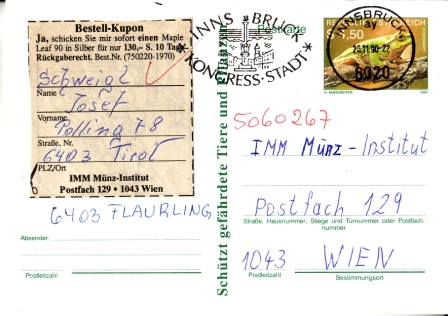 Bestell-Kupon
Ja, schicken Sie mir sofort einen Maple
Leaf 90 in Silber für nur 130,– S. 10 Tage
Rückgaberecht. Best.Nr. (750220-1970)
Schweigl
Name
Josef
Vorname
Polling 78
Straße, Nr.
6403 Tirol
PLZ/Ort
IMM Münz-Institut
Postfach 129 • 1043 Wien
6403 FLAURLING
Absender:
Postleitzahl
Schützt gefährdete Tiere und Pflanzen
INNSBRUCK
KONGRESS-STADT
Postkarte
INNSBRUCK
ay
26.11.90-22
6020
S 4,50
5060267
IMM Münz-Institut
Postfach 129
Straße, Hausnummer, Stiege und Türnummer oder Postfach-
nummer
1043 WIEN
Postleitzahl Bestimmungsort